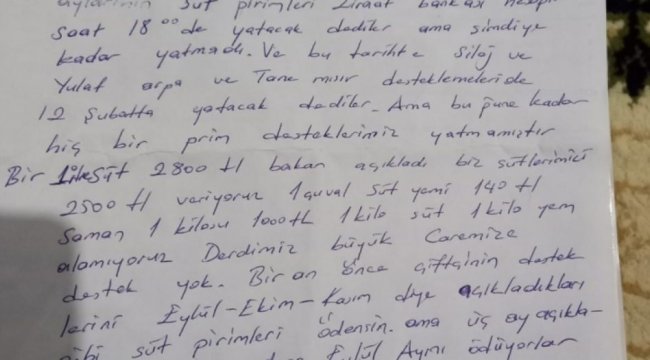 aylarının süt pirimleri Ziraat bankası
saat 18 ⁰⁰ de yatacak dediler ama şimdiye
kadar yatmadı. Ve bu tarihte Silaj ve
Yulaf arpa ve Tane mısır desteklemeleride
12 Şubatta yatacak dediler. Ama bu güne kadar
hiç bir prim desteklerimiz yatmamıştır
Bir süt 2800 tl bakan açıkladı biz sütlerimizi
2500 tl veriyoruz 1 çuval süt yemi 140 tl
Saman 1 kilosu 1000 tl 1 kilo süt 1 kilo yem
alamıyoruz Derdimiz büyük Caremize
destek yok. Bir an önce çiftçinin destek
lerini Eylül-Ekim-Kasım diye açıkladıkları
gibi süt pirimleri ödensin. ama üç ay açıkla-
Eylül Ayını ödüyorlar